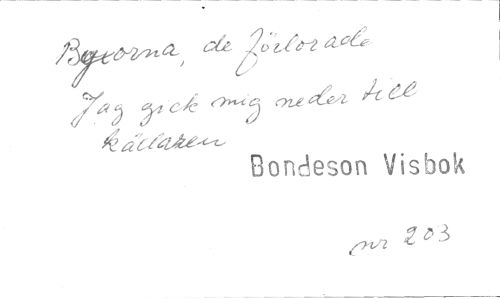 Byxorna, de förlorade
Jag gick mig neder till
källaren
Bondeson Visbok
nr 203